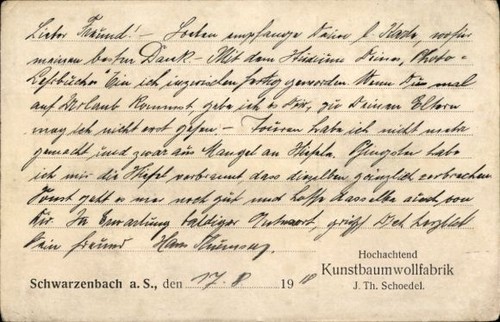 Lieber Freund! - Soeben empfange Deine l. Karte, wofür
meinen besten Dank. - Mit dem Studium Deines „Photo-
bin ich inzwischen fertig geworden Wenn Du mal
auf Urlaub kommst, gebe ich es Dir, zu Deinen Eltern
mag ich nicht erst gehen. - Touren habe ich nicht mehr
gemacht und zwar aus Mangel an Stiefeln. Pfingsten habe
ich mir die Stiefel verbrannt dass dieselben gänzlich zerbrachen
Sonst geht es mir noch gut und hoffe dasselbe auch von
Dir. In Erwartung baldiger Antwort, grüßt Dich herzlich
Dein Freund Hans
Hochachtend
Kunstbaumwollfabrik
J. Th. Schoedel.
Schwarzenbach a. S., den 17. 8 19